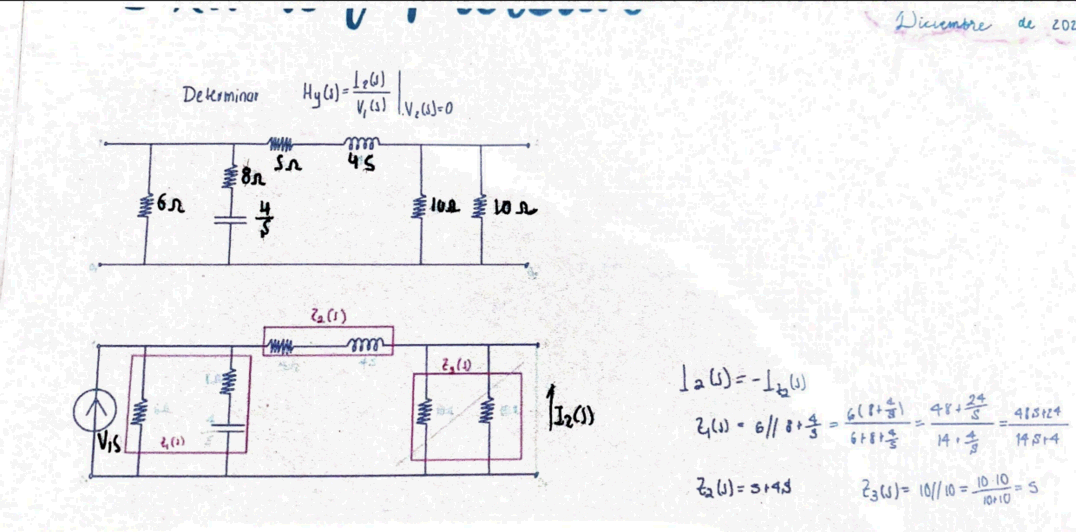 Diciembre de 202
Determinar Hy(s) = I₂(s)/V₁(s) | V₂(s)=0
5Ω 4S
8Ω
6Ω 4/S 10Ω 10Ω
Z₂(s)
Z₃(s)
V₁S Z₁(s) I₂(s)
I₂(s) = -I_{t₂}(s)
Z₁(s) = 6 // 8 + 4/S = 6(8+4/S)/(6+8+4/S) = (48+24/S)/(14+4/S) = (48S+24)/(14S+4)
Z₂(s) = 5+4S Z₃(s) = 10//10 = 10·10/(10+10) = 5